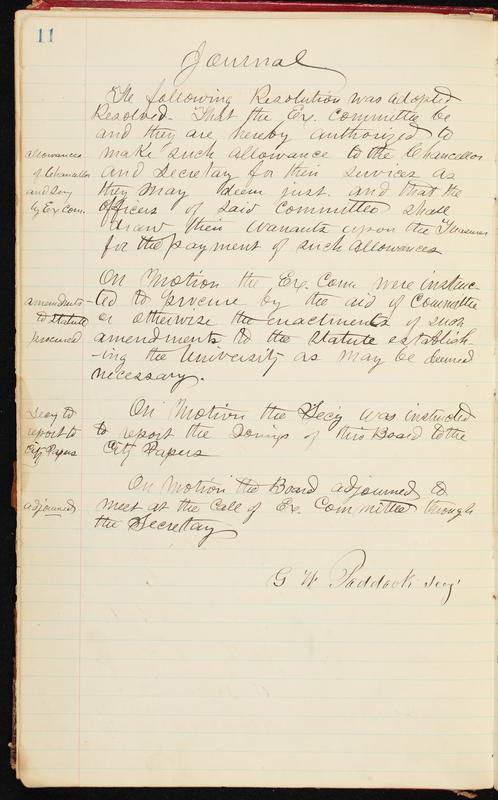 11
Journal
The following Resolution was adopted
Resolved- That the Ex. Committee be
and they are hereby authorized to
allowances
make such allowance to the Chancellor
of Chancellor
and Secretary for their services as
and Secy
they may deem just. and that the
by Ex com.
Officers of said Committee shall
draw their warrants upon the Treasurer
for the payment of such allowances
On Motion the Exr. Com. were instruc-
amendments
ted to procure by the aid of Committee
to statute
or otherwise the enactments of such
procured
amendments to the Statute establish
-ing the University as may be deemed
necessary.
Secy to
On Motion the Sec'y was instructed
report to
to report the doings of this Board to the
City Papers
City Papers
On Motion the Board adjourned to
adjourned
meet at the Call of Ex. Committee through
the Secretary
G W Paddock Secy